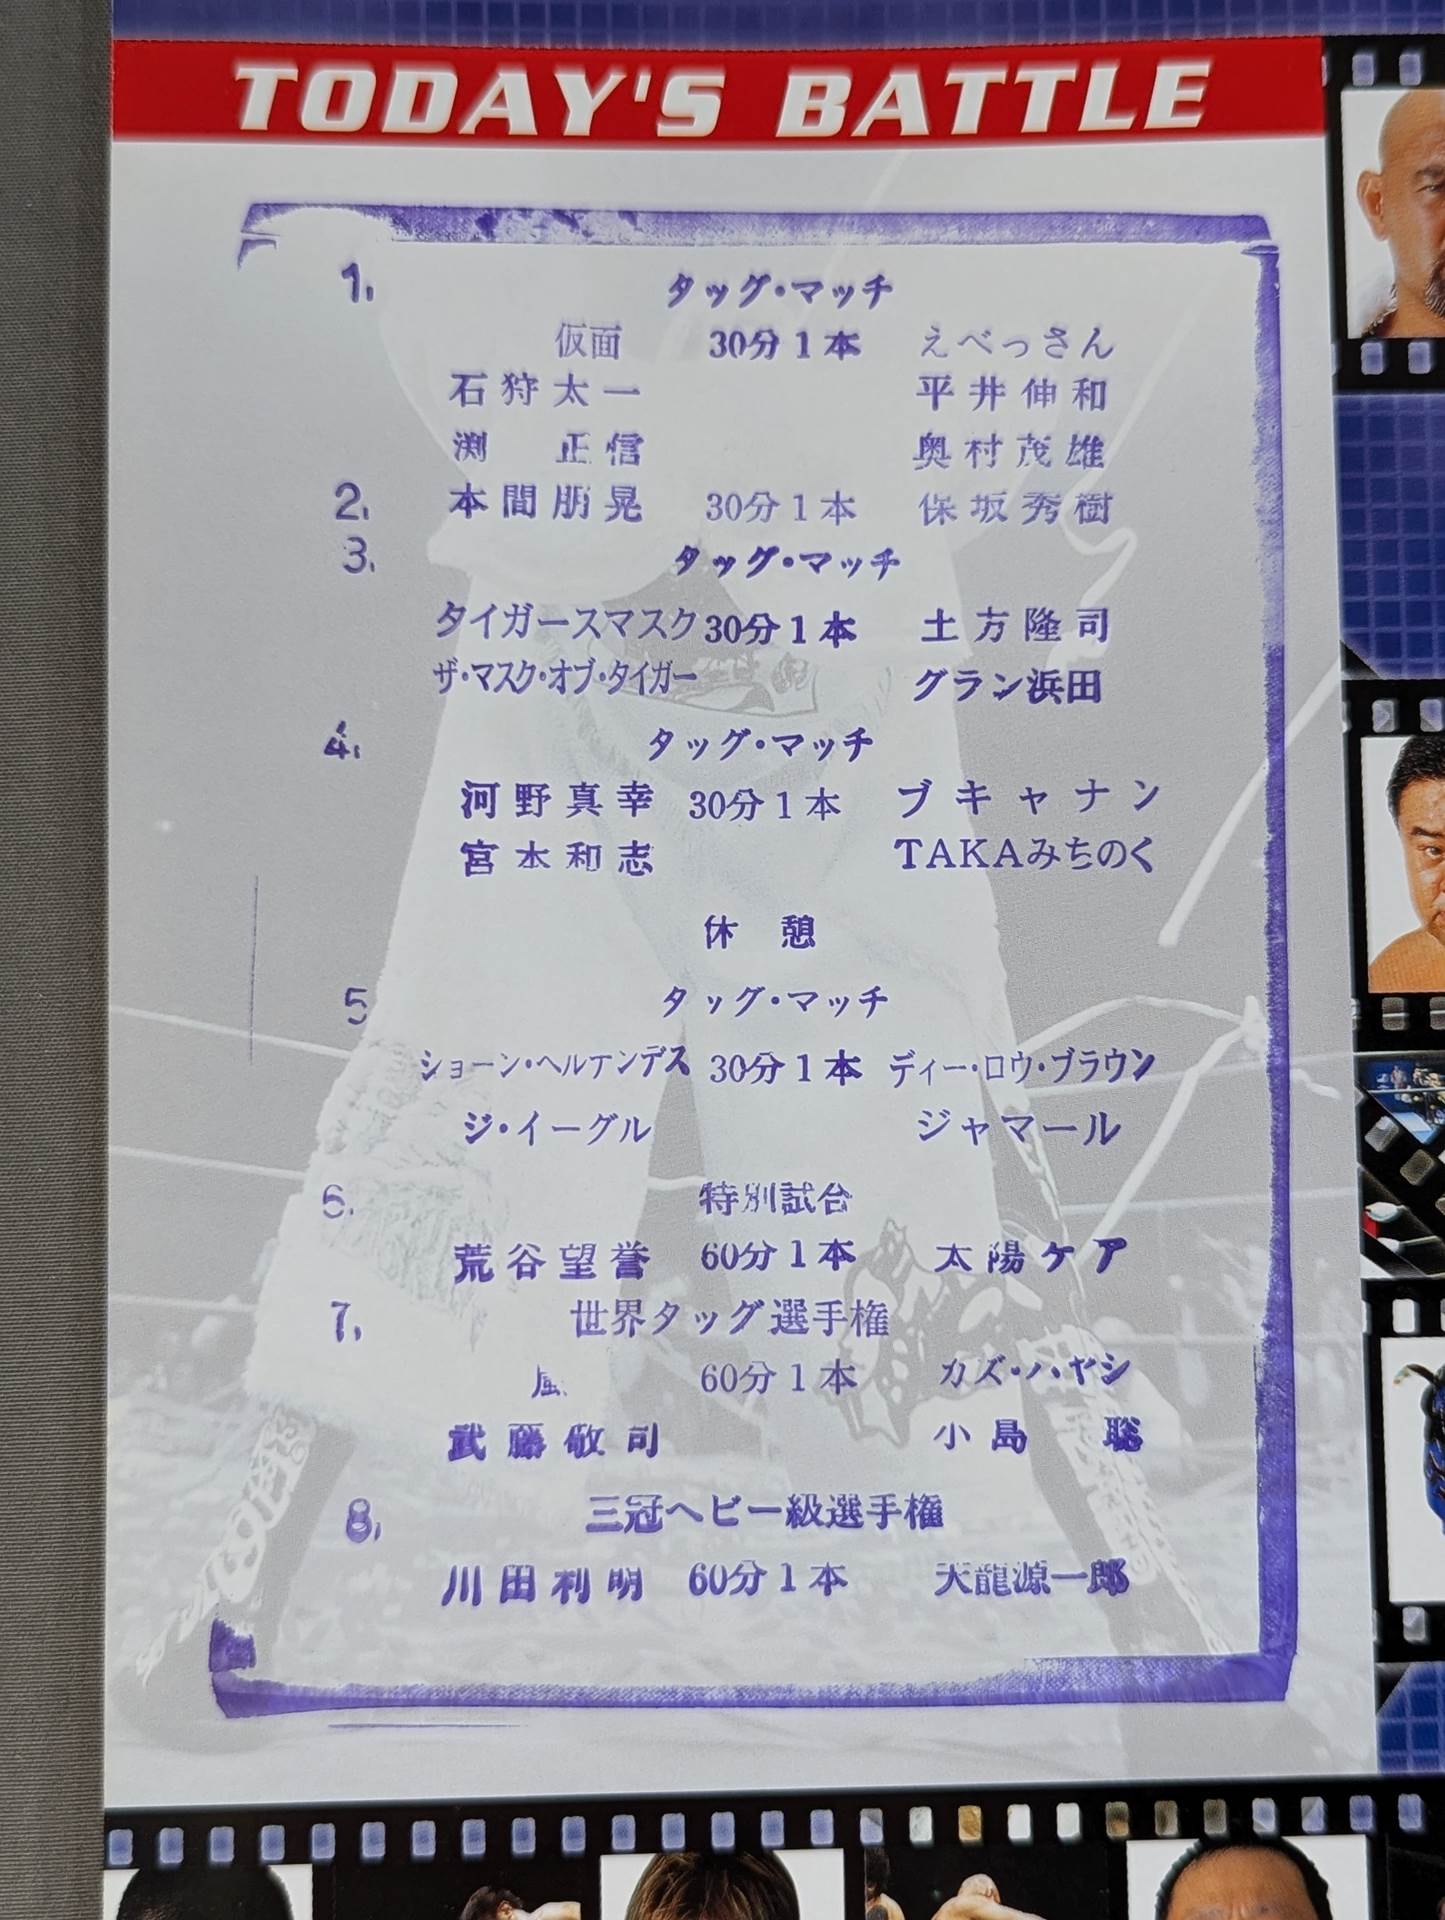 TODAY'S BATTLE
1. タッグ・マッチ
仮面 30分1本 えべっさん
石狩太一 平井伸和
渕 正信 奥村茂雄
2. 本間朋晃 30分1本 保坂秀樹
3. タッグ・マッチ
タイガースマスク 30分1本 土方隆司
ザ・マスク・オブ・タイガー グラン浜田
4. タッグ・マッチ
河野真幸 30分1本 ブキャナン
宮本和志 TAKAみちのく
休憩
5 タッグ・マッチ
ショーン・ヘルナンデス 30分1本 ディー・ロウ・ブラウン
ジ・イーグル ジャマール
6. 特別試合
荒谷望誉 60分1本 太陽ケア
7. 世界タッグ選手権
嵐 60分1本 カズ・ハヤシ
武藤敬司 小島 聡
8. 三冠ヘビー級選手権
川田利明 60分1本 天龍源一郎